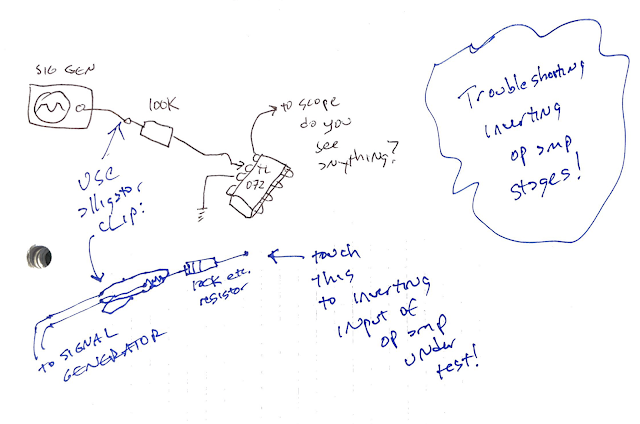 SIG GEN
100K
to scope
do you
see
anything?
TL
072
USE
alligator
CLIP!
100K etc.
resistor
to SIGNAL
GENERATOR
touch
this
to inverting
input of
op amp
under
test!
Troubleshooting
inverting
op amp
stages!